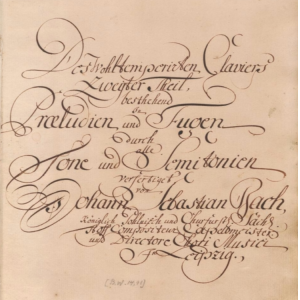 Des Wohltemperirten Claviers
Zweyter Theil,
bestehend
in
Præludien und Fugen
durch
alle
Tone und Semitonien
verfertiget
von
Johann Sebastian Bach,
Königlich Pohlnisch und Churfürstl. Sächs.
Hoff Compositeur Capellmeister
und Directore Chori Musici
Leipzig.